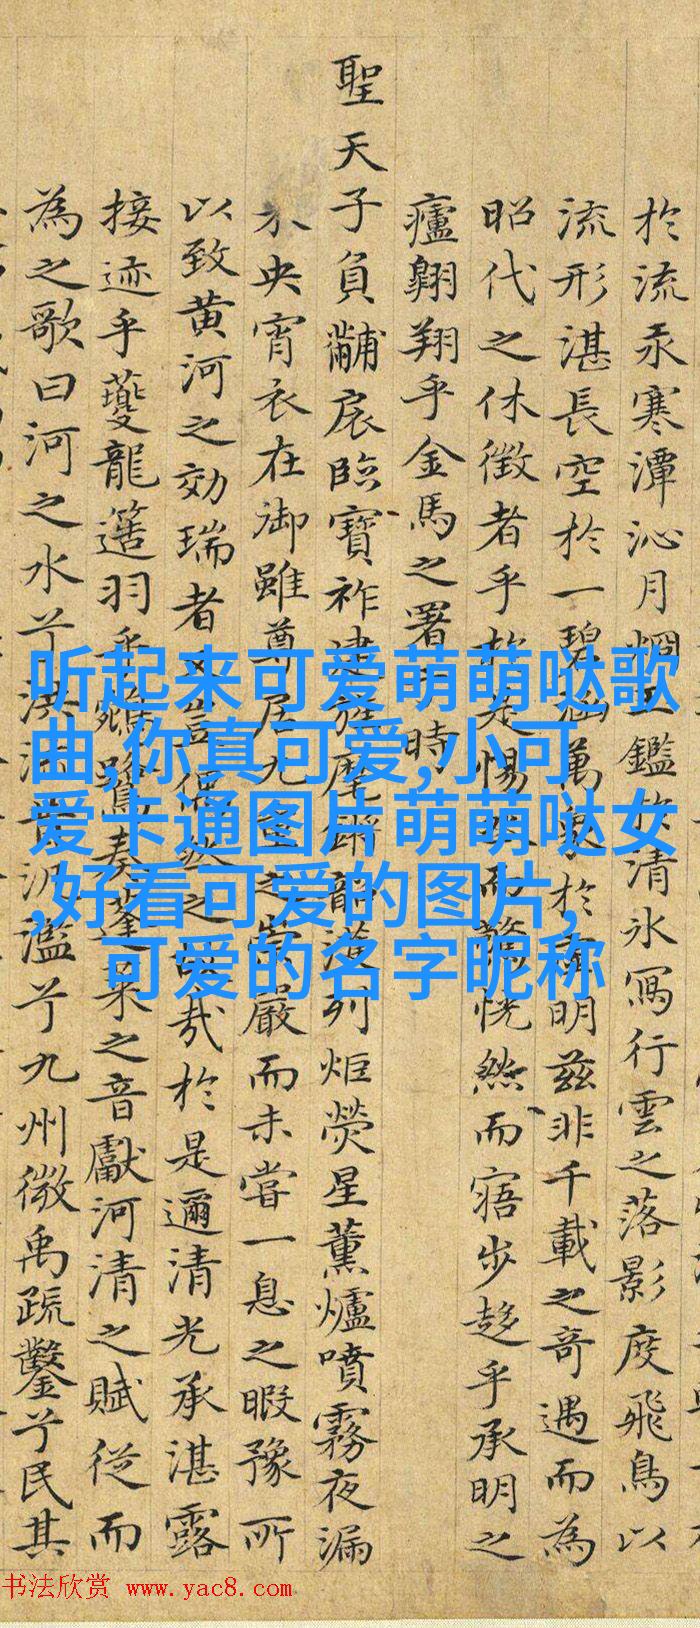 於流汞寒潭沁月鑑於清氷寫行雲之落影度飛鳥以
流形湛長空於一碧涵萬於明茲非千載之奇遇而為
昭代之休徵者乎於是惕而驚恍然而寤步趍乎承明之
廬翱翔乎金馬之署于時
聖天子負黼扆臨寶祚建旌麾鏘韶濩列炬熒星薰爐噴霧夜漏
未央宵衣在御雖尊居九重之崇嚴而未嘗一息之暇豫所
以致黄河之効瑞者豈偶然之哉於是邇清光承湛露
接迹乎夔龍簉羽乎鷺奏蓬萊之音獻河清之賦從而
為之歌曰河之水兮濫兮九州微禹疏鑿兮民其
听起来可爱萌萌哒歌
曲,你真可爱,小可
爱卡通图片萌萌哒女
,好看可爱的图片,
可爱的名字昵称
书法欣赏 www.yac8.com